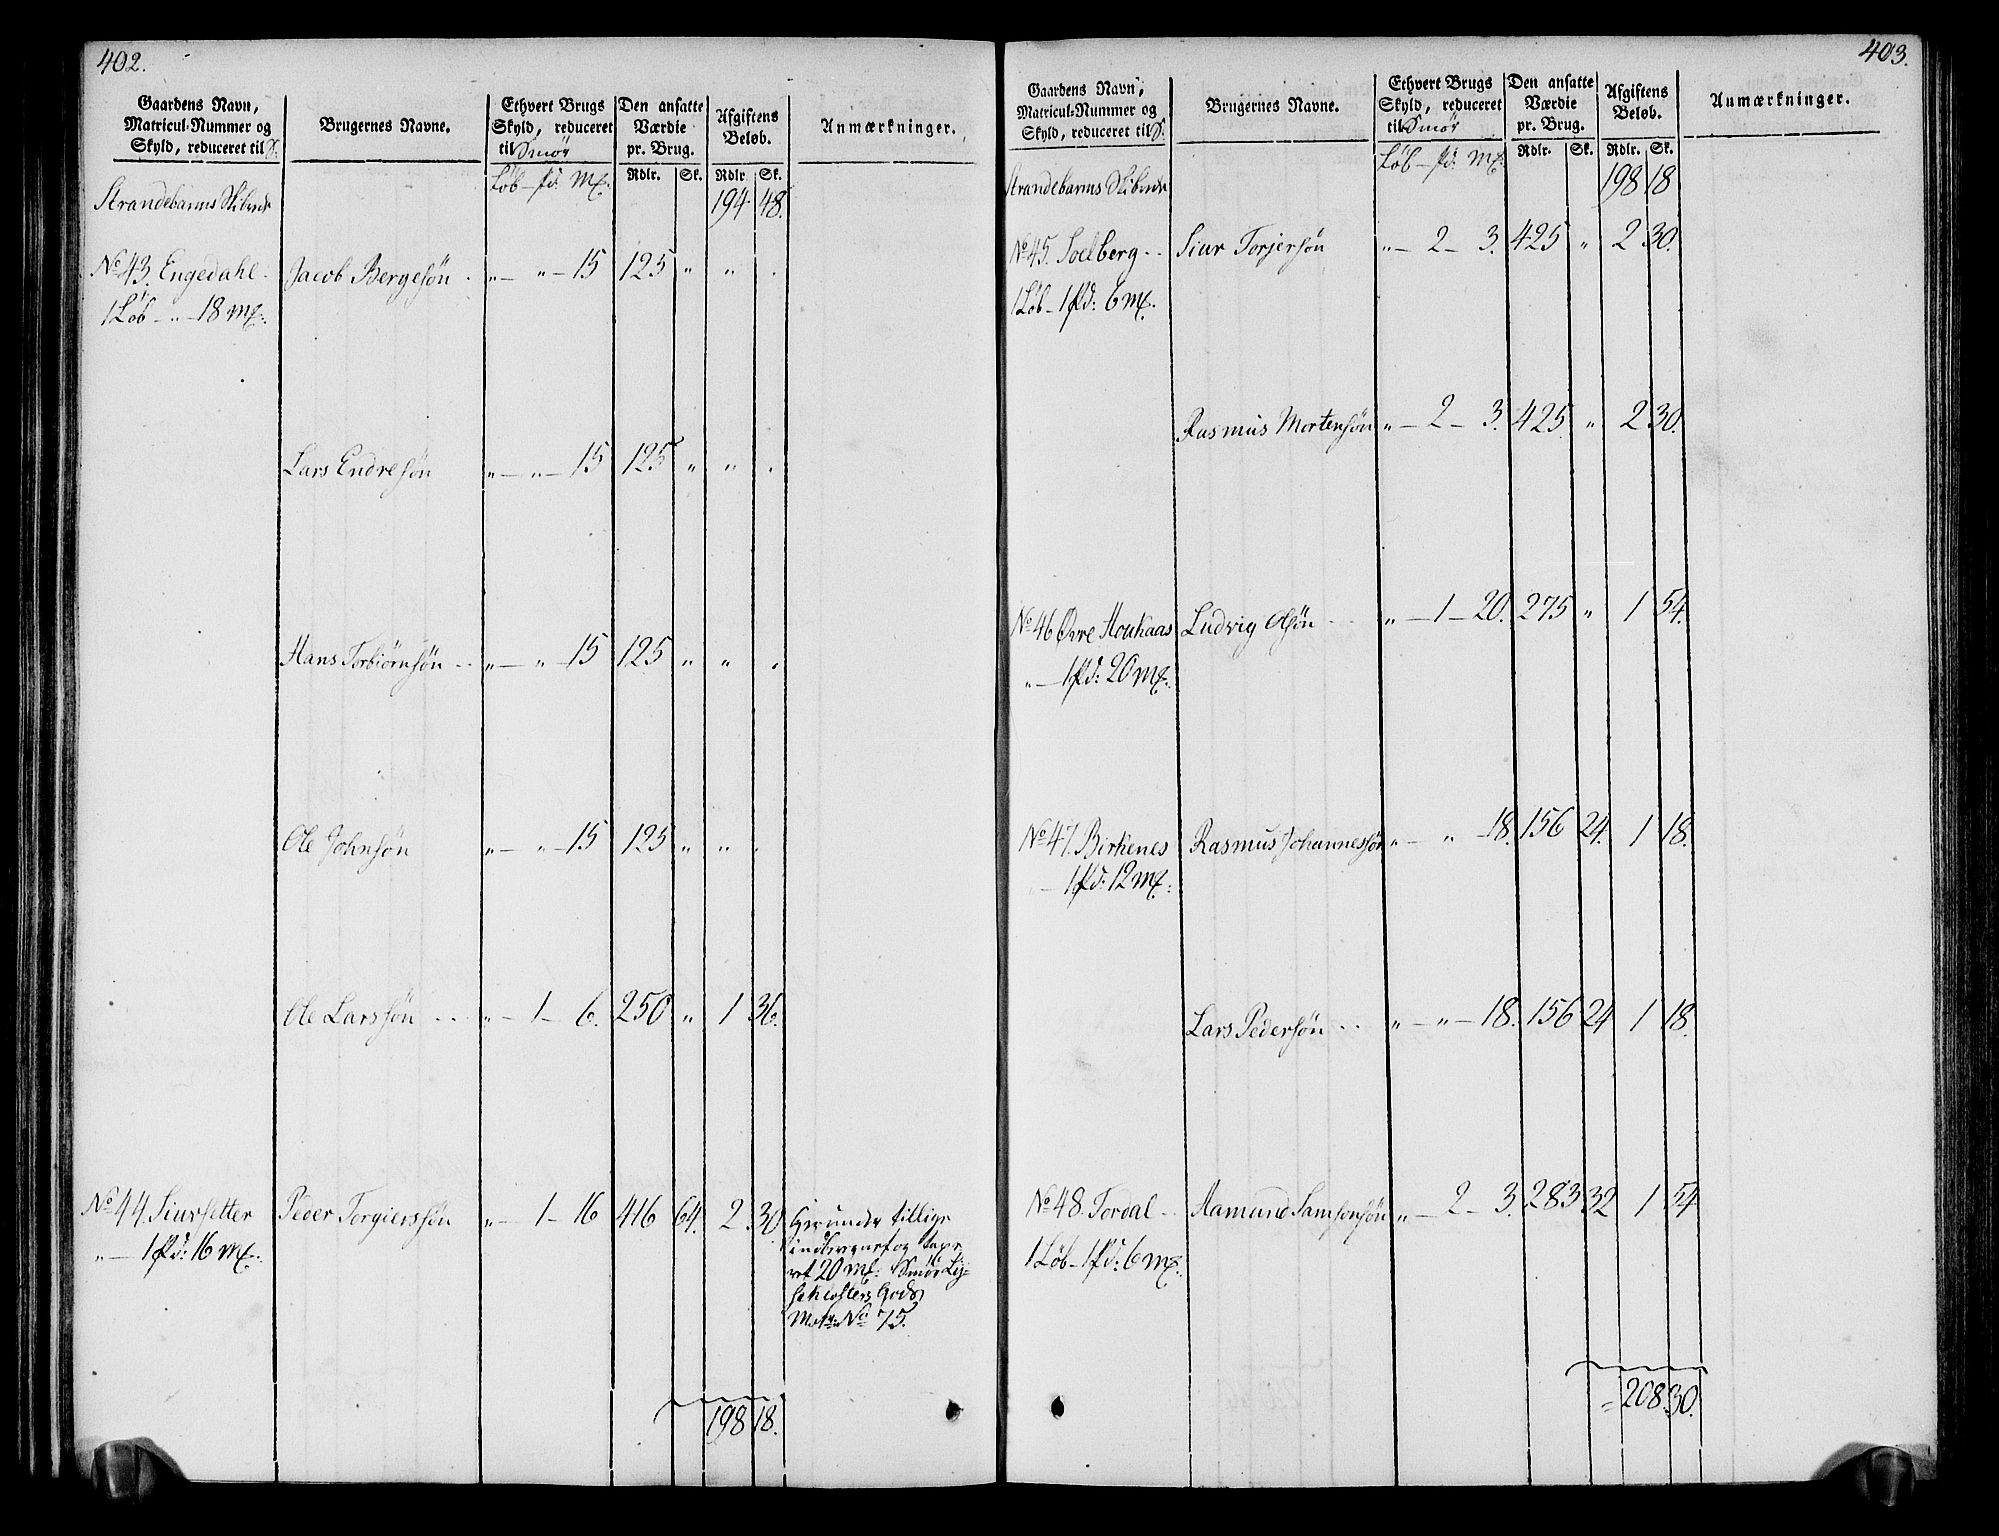 402.
Gaardens Navn, Matricul-Nummer og Skyld, reduceret til S. | Brugernes Navne. | Ethvert Brugs Skyld, reduceret til Smør | Den ansatte Værdie pr. Brug. | Afgiftens Beløb. | Anmærkninger.
Løb - pd: Mk: | Rdlr. | Sk. | Rdlr | Sk.
Strandebarms Skibrede | 194 | 48.
No 43. Engedahl. | Jacob Bergesøn | „ — „ — 15 | 125 | „ | „ | .
1 Løb - „ - 18 Mk:
Lars Endresøn | „ — „ — 15 | 125 | „ | „ | .
Hans Torbiørnsøn | „ — „ — 15 | 125 | „ | „ | .
Ole Johnsøn | „ — „ — 15 | 125 | „ | „ | .
Ole Larssøn | „ — 1 — 6. | 250 | „ | 1 | 36.
No 44. Siursetter | Peder Torgierssøn | „ — 1 — 16 | 416 | 64. | 2 | 30. | Herunder tillige
„ — 1 Pd: 16 Mk: | indberegnet og taxe-
ret 20 Mk: Smør Ly-
seklosters Gods
Matr: No 75.
198 | 18.
403.
Gaardens Navn, Matricul-Nummer og Skyld, reduceret til S. | Brugernes Navne. | Ethvert Brugs Skyld, reduceret til Smør | Den ansatte Værdie pr. Brug. | Afgiftens Beløb. | Anmærkninger.
Løb - pd: Mk: | Rdlr. | Sk. | Rdlr. | Sk.
Strandebarms Skibrede | 198 | 18
No 45. Soelberg | Siur Torjersøn | „ — 2 — 3. | 425 | „ | 2 | 30.
1 Løb - 1 Pd: 6 Mk.
Rasmus Mortensøn | „ — 2 — 3. | 425. | „ | 2 | 30.
No 46 Øvre Houkaas | Ludvig Olsøn | „ — 1 — 20. | 275 | „ | 1 | 54.
„ — 1 Pd: 20 Mk.
No 47. Birkenes | Rasmus Johannessøn | „ — „ — 18. | 156 | 24. | 1 | 18.
„ — 1 Pd: 12 Mk:
Lars Pedersøn | „ — „ — 18. | 156 | 24 | 1 | 18.
No 48. Tordal | Aamund Samsonsøn | „ — 2 — 3. | 283 | 32 | 1 | 54
1 Løb - 1 Pd: 6 Mk:
= 208. | 30.